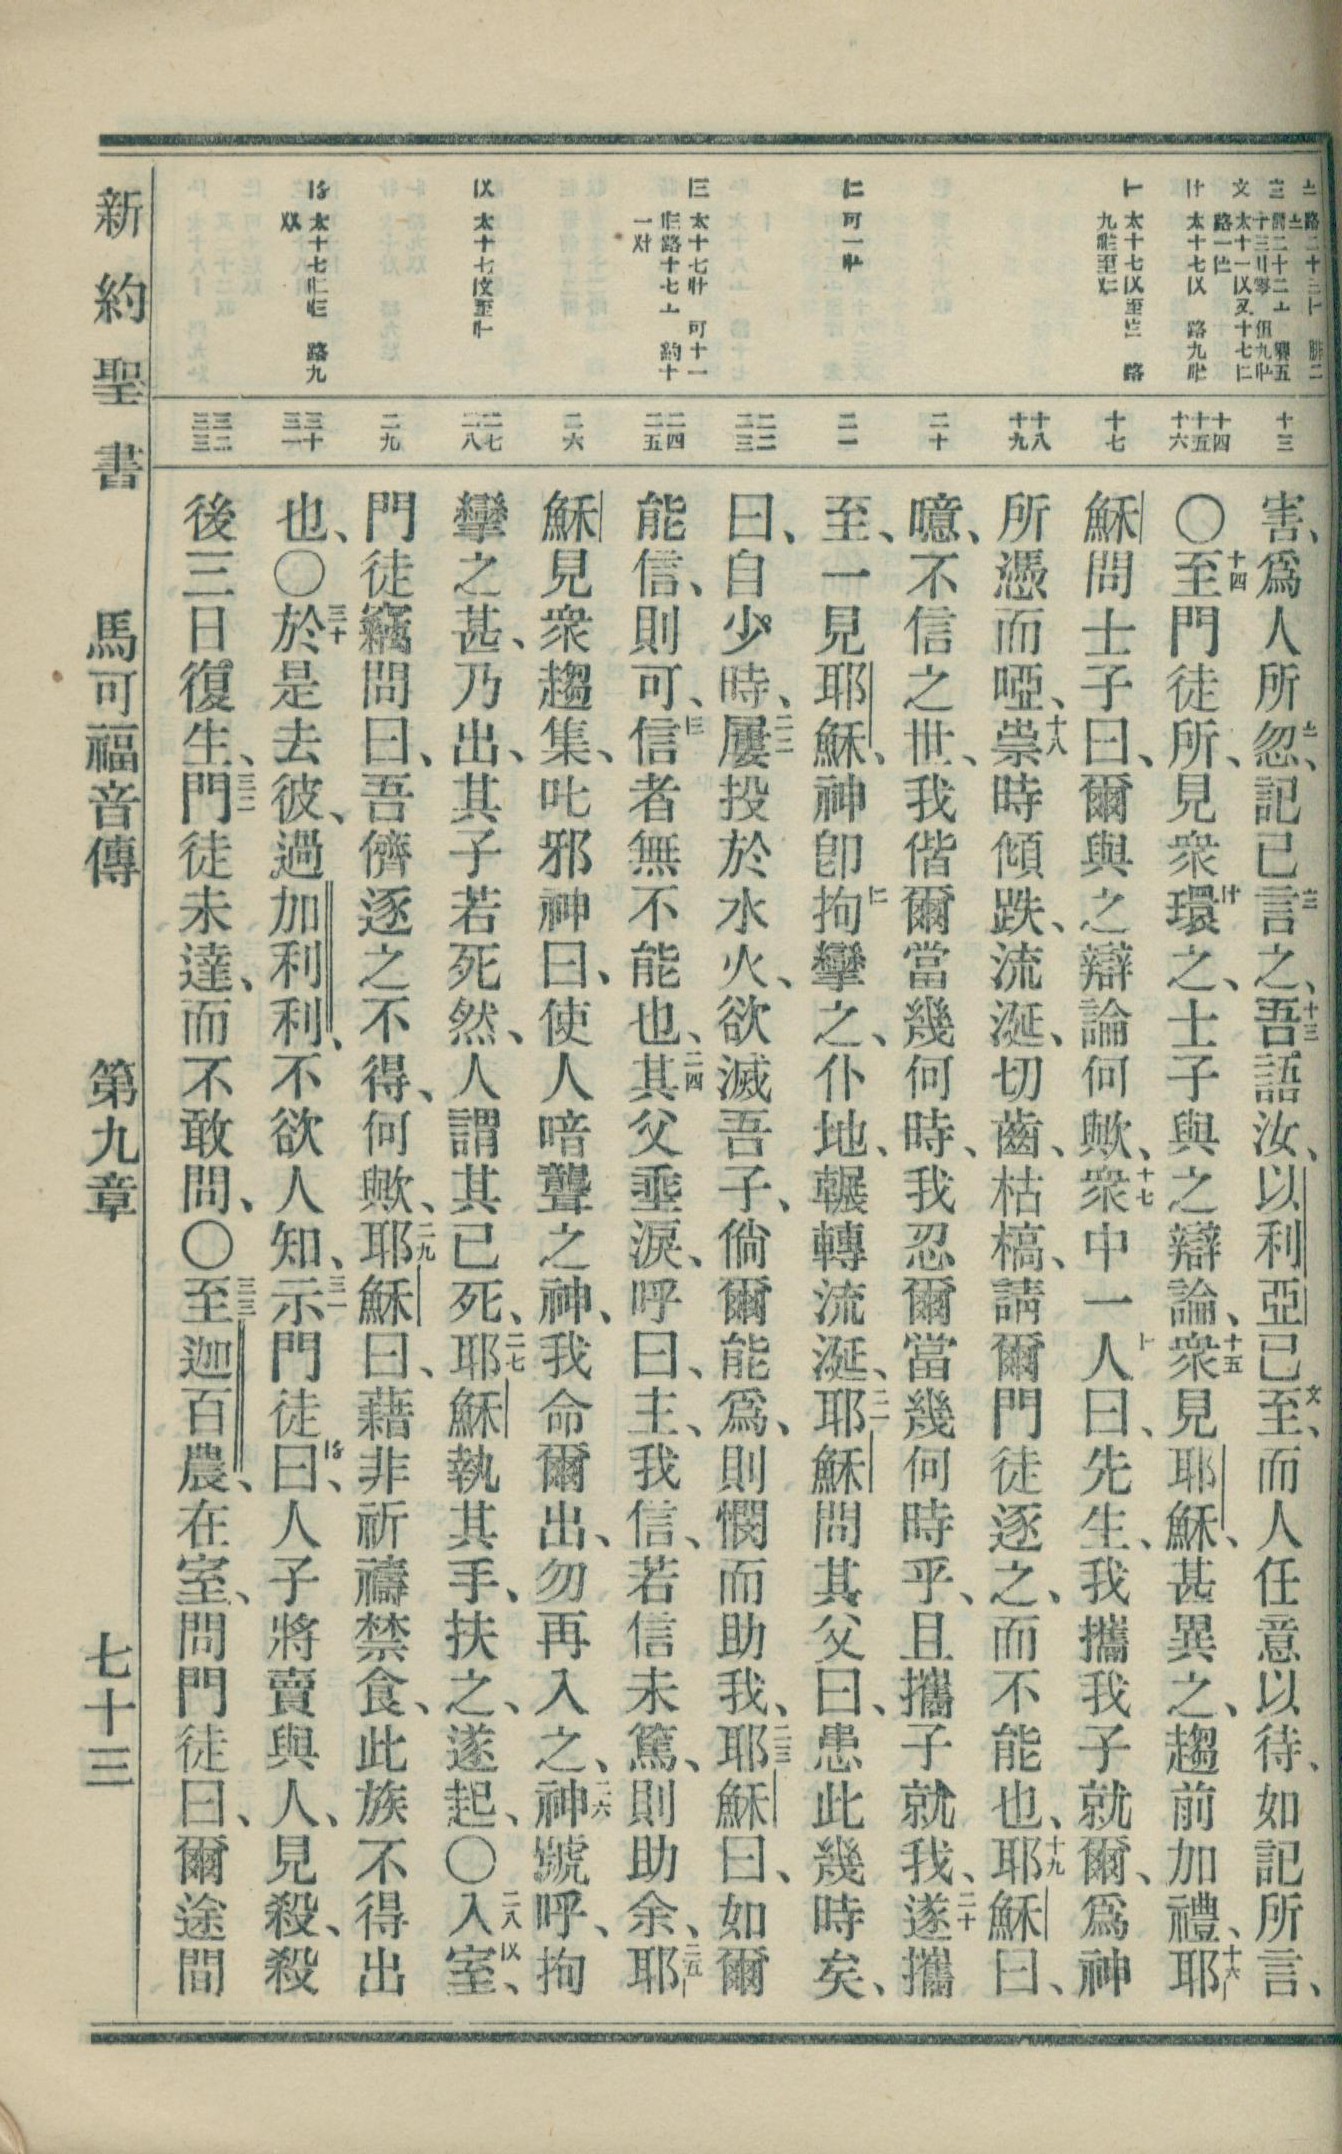 害、爲人所忽、記已言之、吾語汝、以利亞已至、而人任意以待、如記所言、
〇至門徒所、見衆環之、士子與之辯論、衆見耶穌、甚異之、趨前加禮、耶
穌問士子曰、爾與之辯論何歟、衆中一人曰、先生、我攜我子就爾、爲神
所憑而啞、祟時傾跌、流涎、切齒、枯槁、請爾門徒逐之、而不能也、耶穌曰、
噫、不信之世、我偕爾當幾何時、我忍爾當幾何時乎、且攜子就我、遂攜
至、一見耶穌、神卽拘攣之、仆地、輾轉流涎、耶穌問其父曰、患此幾時矣、
曰、自少時、屢投於水火、欲滅吾子、倘爾能爲、則憫而助我、耶穌曰、如爾
能信、則可、信者無不能也、其父垂淚、呼曰、主、我信、若信未篤、則助余、耶
穌見衆趨集、叱邪神曰、使人喑聾之神、我命爾出、勿再入之、神號呼、拘
攣之甚、乃出、其子若死然、人謂其已死、耶穌執其手、扶之、遂起、〇入室、
門徒竊問曰、吾儕逐之不得、何歟、耶穌曰、藉非祈禱禁食、此族不得出
也、〇於是去彼、過加利利、不欲人知、示門徒曰、人子將賣與人、見殺、殺
後三日復生、門徒未達、而不敢問、〇至迦百農、在室、問門徒曰、爾途間
新約聖書 馬可福音傳 第九章 七十三
十三
十四 十五 十六
十七
十八 十九
二十
二一
二二 二三
二四 二五
二六
二七 二八
二九
三十 三一
三二 三三